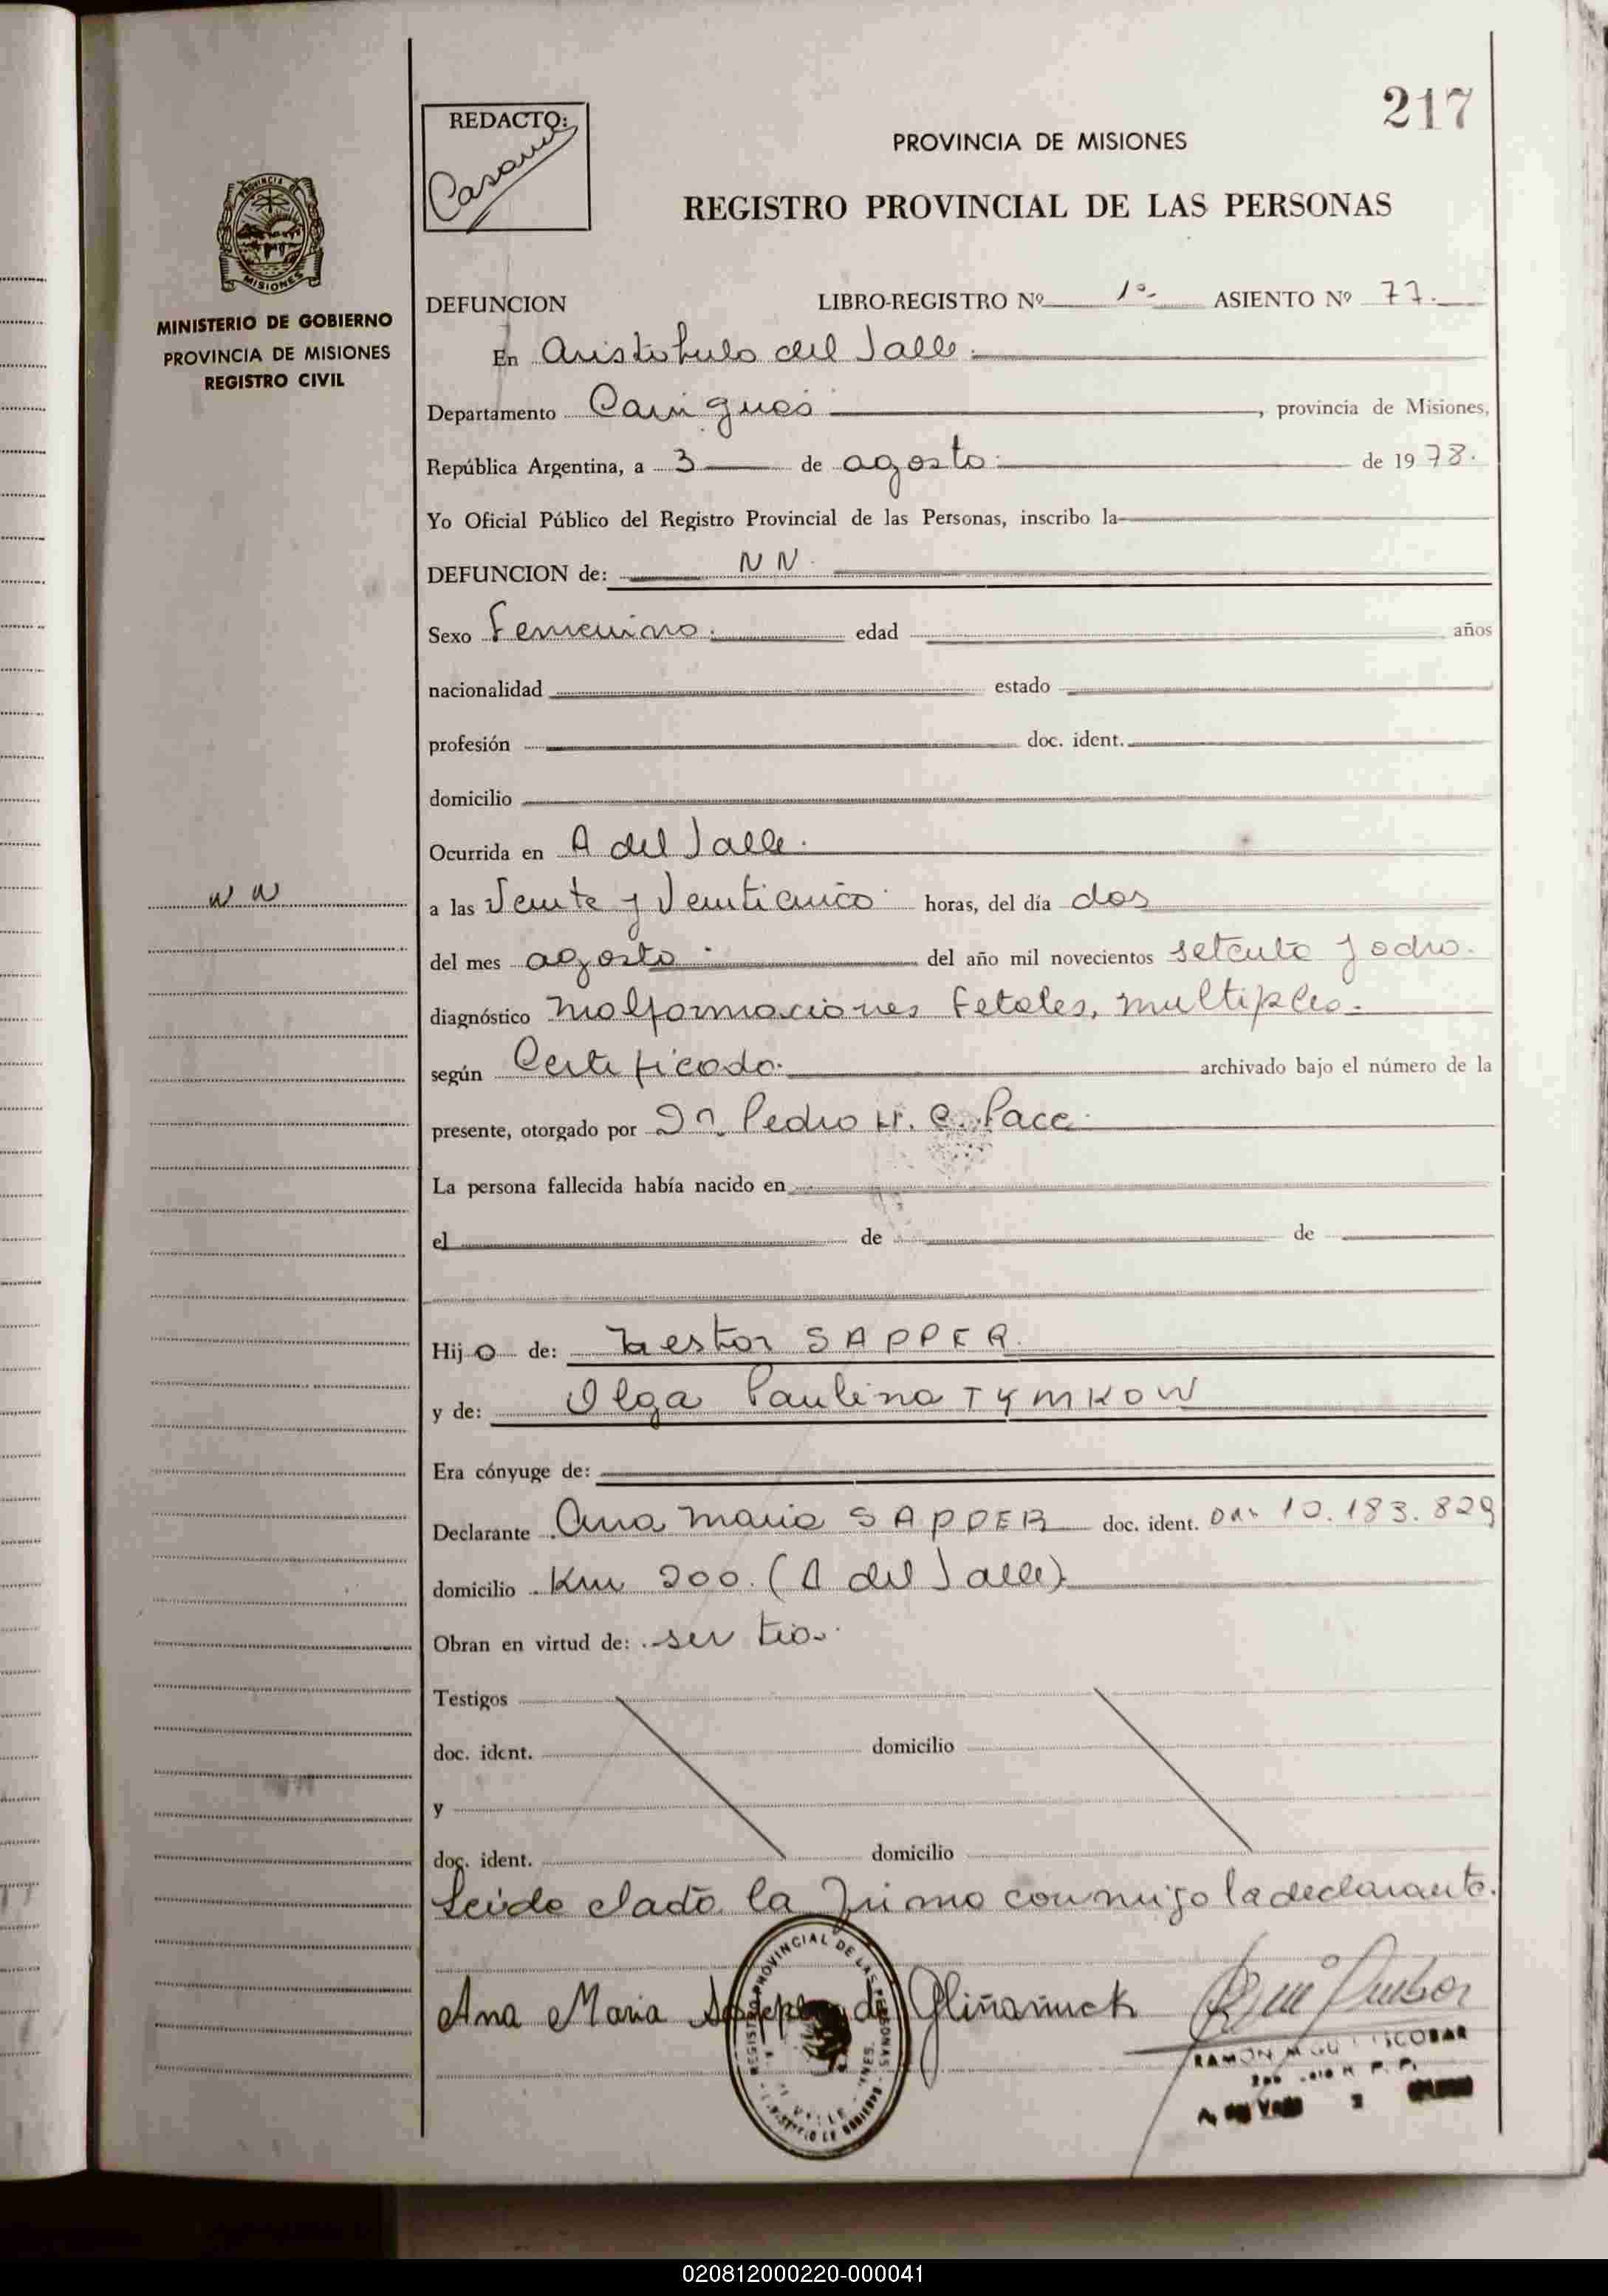 217
REDACTO:
PROVINCIA DE MISIONES
REGISTRO PROVINCIAL DE LAS PERSONAS
PROVINCIA DE
MISIONES
MINISTERIO DE GOBIERNO
PROVINCIA DE MISIONES
REGISTRO CIVIL
DEFUNCION LIBRO-REGISTRO Nº 1º- ASIENTO Nº 77.
En Aristobulo del Valle.
Departamento Cainguas, provincia de Misiones,
República Argentina, a 3 de agosto de 1978.
Yo Oficial Público del Registro Provincial de las Personas, inscribo la
DEFUNCION de: N N.
Sexo Femenino. edad años
nacionalidad estado
profesión doc. ident.
domicilio
Ocurrida en A del Valle.
N N
a las Veinte y Veinticinco horas, del día dos
del mes agosto del año mil novecientos setenta y ocho.
diagnóstico Malformaciones Fetales, multiples.
según Certificado. archivado bajo el número de la
presente, otorgado por Dr. Pedro H. C. Pace
La persona fallecida había nacido en
el de de
Hijo de: Nestor SAPPER.
y de: Olga Paulina TYMKOW
Era cónyuge de:
Declarante Ana Maria SAPPER doc. ident. 10.183.829
domicilio Km 200. (A del Valle)
Obran en virtud de: ser tia.
Testigos
doc. ident. domicilio
y
doc. ident. domicilio
Leida el acta la firma conmigo la declarante.
Ana Maria Sapper de
REGISTRO PROVINCIAL DE LAS PERSONAS
RAMON ESCOBAR
020812000220-000041